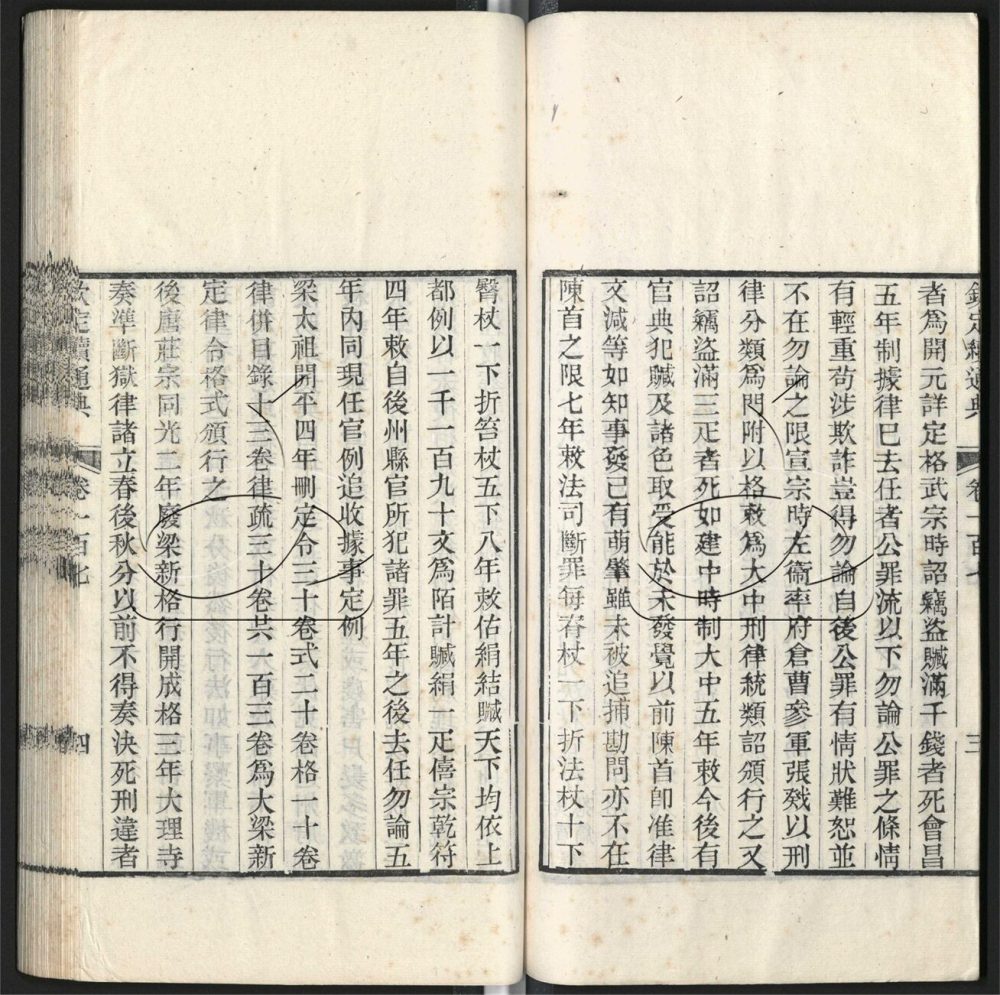 欽定續通典 卷一百七 三
者爲開元詳定格武宗時詔竊盜贓滿千錢者死會昌
五年制據律已去任者公罪流以下勿論公罪之條情
有輕重苟涉欺詐豈得勿論自後公罪有情狀難恕並
不在勿論之限宣宗時左衞率府倉曹參軍張戣以刑
律分類爲門附以格敕爲大中刑律統類詔頒行之又
詔竊盜滿三疋者死如建中時制大中五年敕今後有
官典犯贓及諸色取受能於未發覺以前陳首卽准律
文減等如知事發已有萌肇雖未被追捕勘問亦不在
陳首之限七年敕法司斷罪每脊杖一下折法杖十下
臀杖一下折笞杖五下八年敕估絹結贓天下均依上
都例以一千一百九十文爲陌計贓絹一疋僖宗乾符
四年敕自後州縣官所犯諸罪五年之後去任勿論五
年內同現任官例追收據事定例
梁太祖開平四年刪定令三十卷式二十卷格一十卷
律併目錄十三卷律疏三十卷共一百三卷爲大梁新
定律令格式頒行之
後唐莊宗同光二年廢梁新格行開成格三年大理寺
奏準斷獄律諸立春後秋分以前不得奏決死刑違者
欽定續通典 卷一百七 四